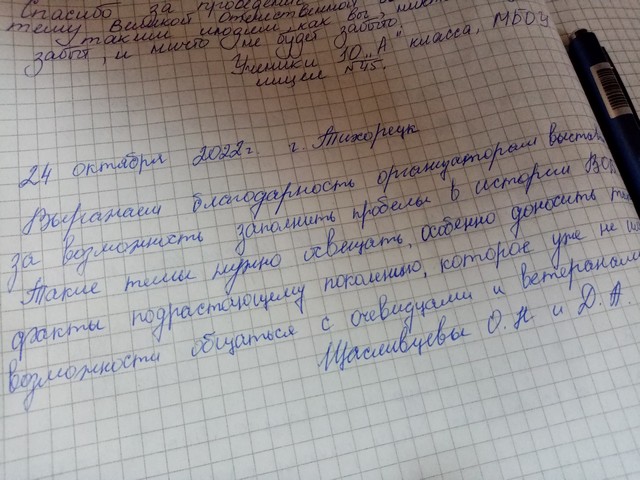 Спасибо за проведение
тему Великой Отечественной
таким людям как вы, никто не
забыт, и ничто не будет забыто.
Ученики 10 „А" класса, МБОУ
лицея №45.
24 октября 2022г. г. Тихорецк
Выражаем благодарность организаторам выстав
за возможность заполнить пробелы в истории ВОВ.
Такие темы нужно освещать, особенно доносить
факты подрастающему поколению, которое уже не
возможности общаться с очевидцами и ветеранами
Щасливцевы О.Н. и Д.А.